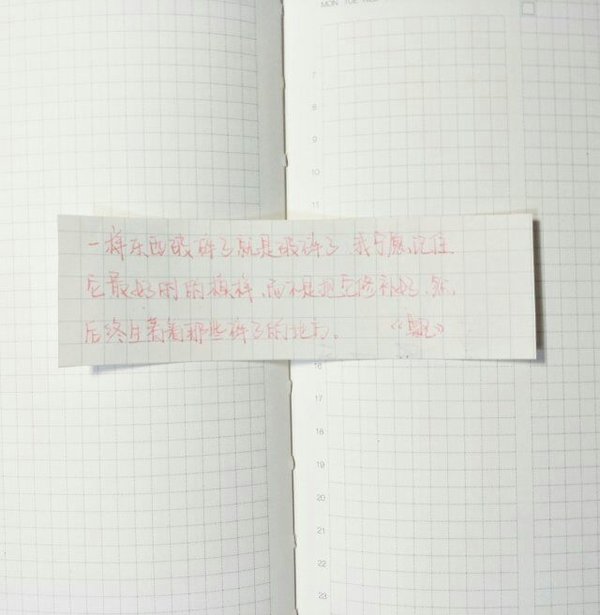 MON TUE
7
8
9
10
一样东西破碎了就是破碎了,我宁愿记住
它最好时的模样,而不是把它修补好,然
后终生看着那些碎了的地方。 《飘》
16
17
18
19
20
21
22
23